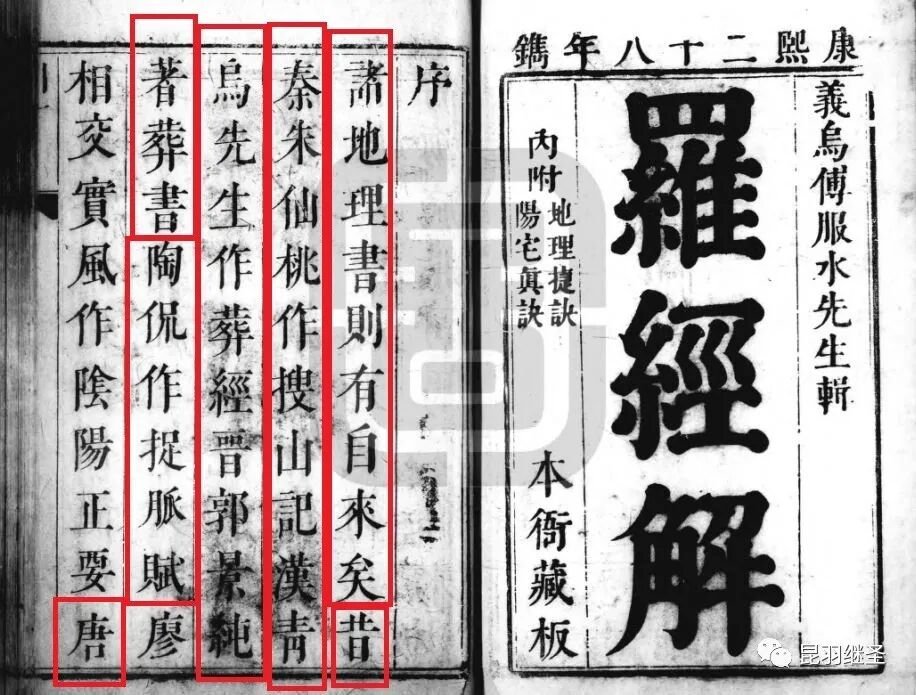 康熙二十八年鐫
義烏傅服水先生輯
羅經解
內附地理捷訣
陽宅眞訣
本衙藏板
序
諸地理書則有自來矣昔
秦朱仙桃作搜山記漢青
烏先生作葬經晋郭景純
著葬書陶侃作捉脈賦廖
相交實風作陰陽正要唐
昆羽继圣